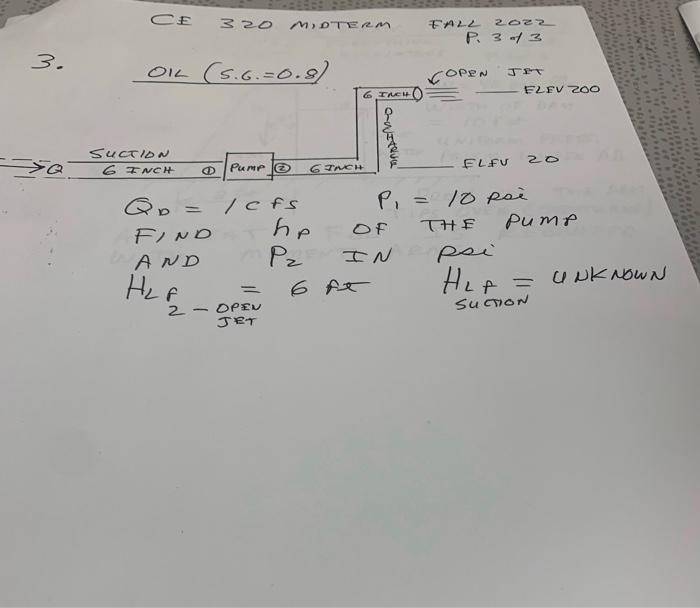 CE 320 MIDTERM FALL 2022
P. 3 of 3
3.
OIL (S.G.=0.8)
OPEN JET
6 INCH
ELEV 200
DISCHARGE
SUCTION
ELEV 20
Q
6 INCH ① PUMP ② 6 INCH
QD = 1 cfs P1 = 10 psi
FIND hp OF THE PUMP
AND P2 IN psi
HLf = 6 ft HLf = UNKNOWN
2 - OPEN JET SUCTION